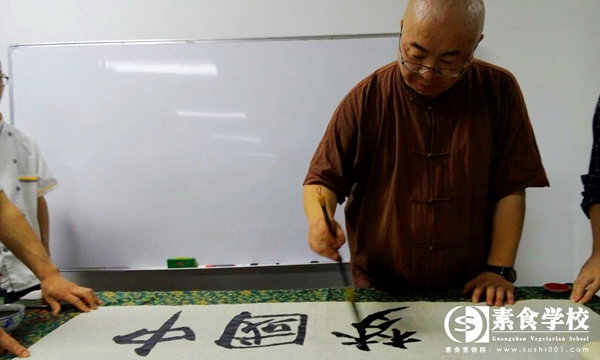 中國梦
素食学校
Guangzhou Vegetarian School
素食营销网：www.sushi001.com